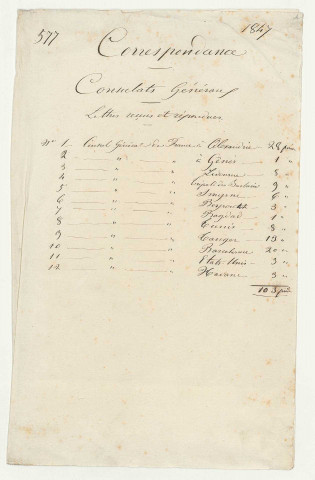 577
1847
Correspondance
Consulats Généraux
Lettres reçues et réponses
Nos 1 Consul Général de France à Alexandrie 28 pièces
2 " " à Gênes 1 "
3 " " 8 "
4 " " 9 "
5 " " Smyrne 6 "
6 " " Beyrouth 3 "
7 " " Bagdad 1 "
8 " " Tunis 8 "
9 " " Tanger 13 "
10 " " Barcelone 20 "
11 " " Etats Unis 3 "
12 " " Havane 3 "
103 pièces